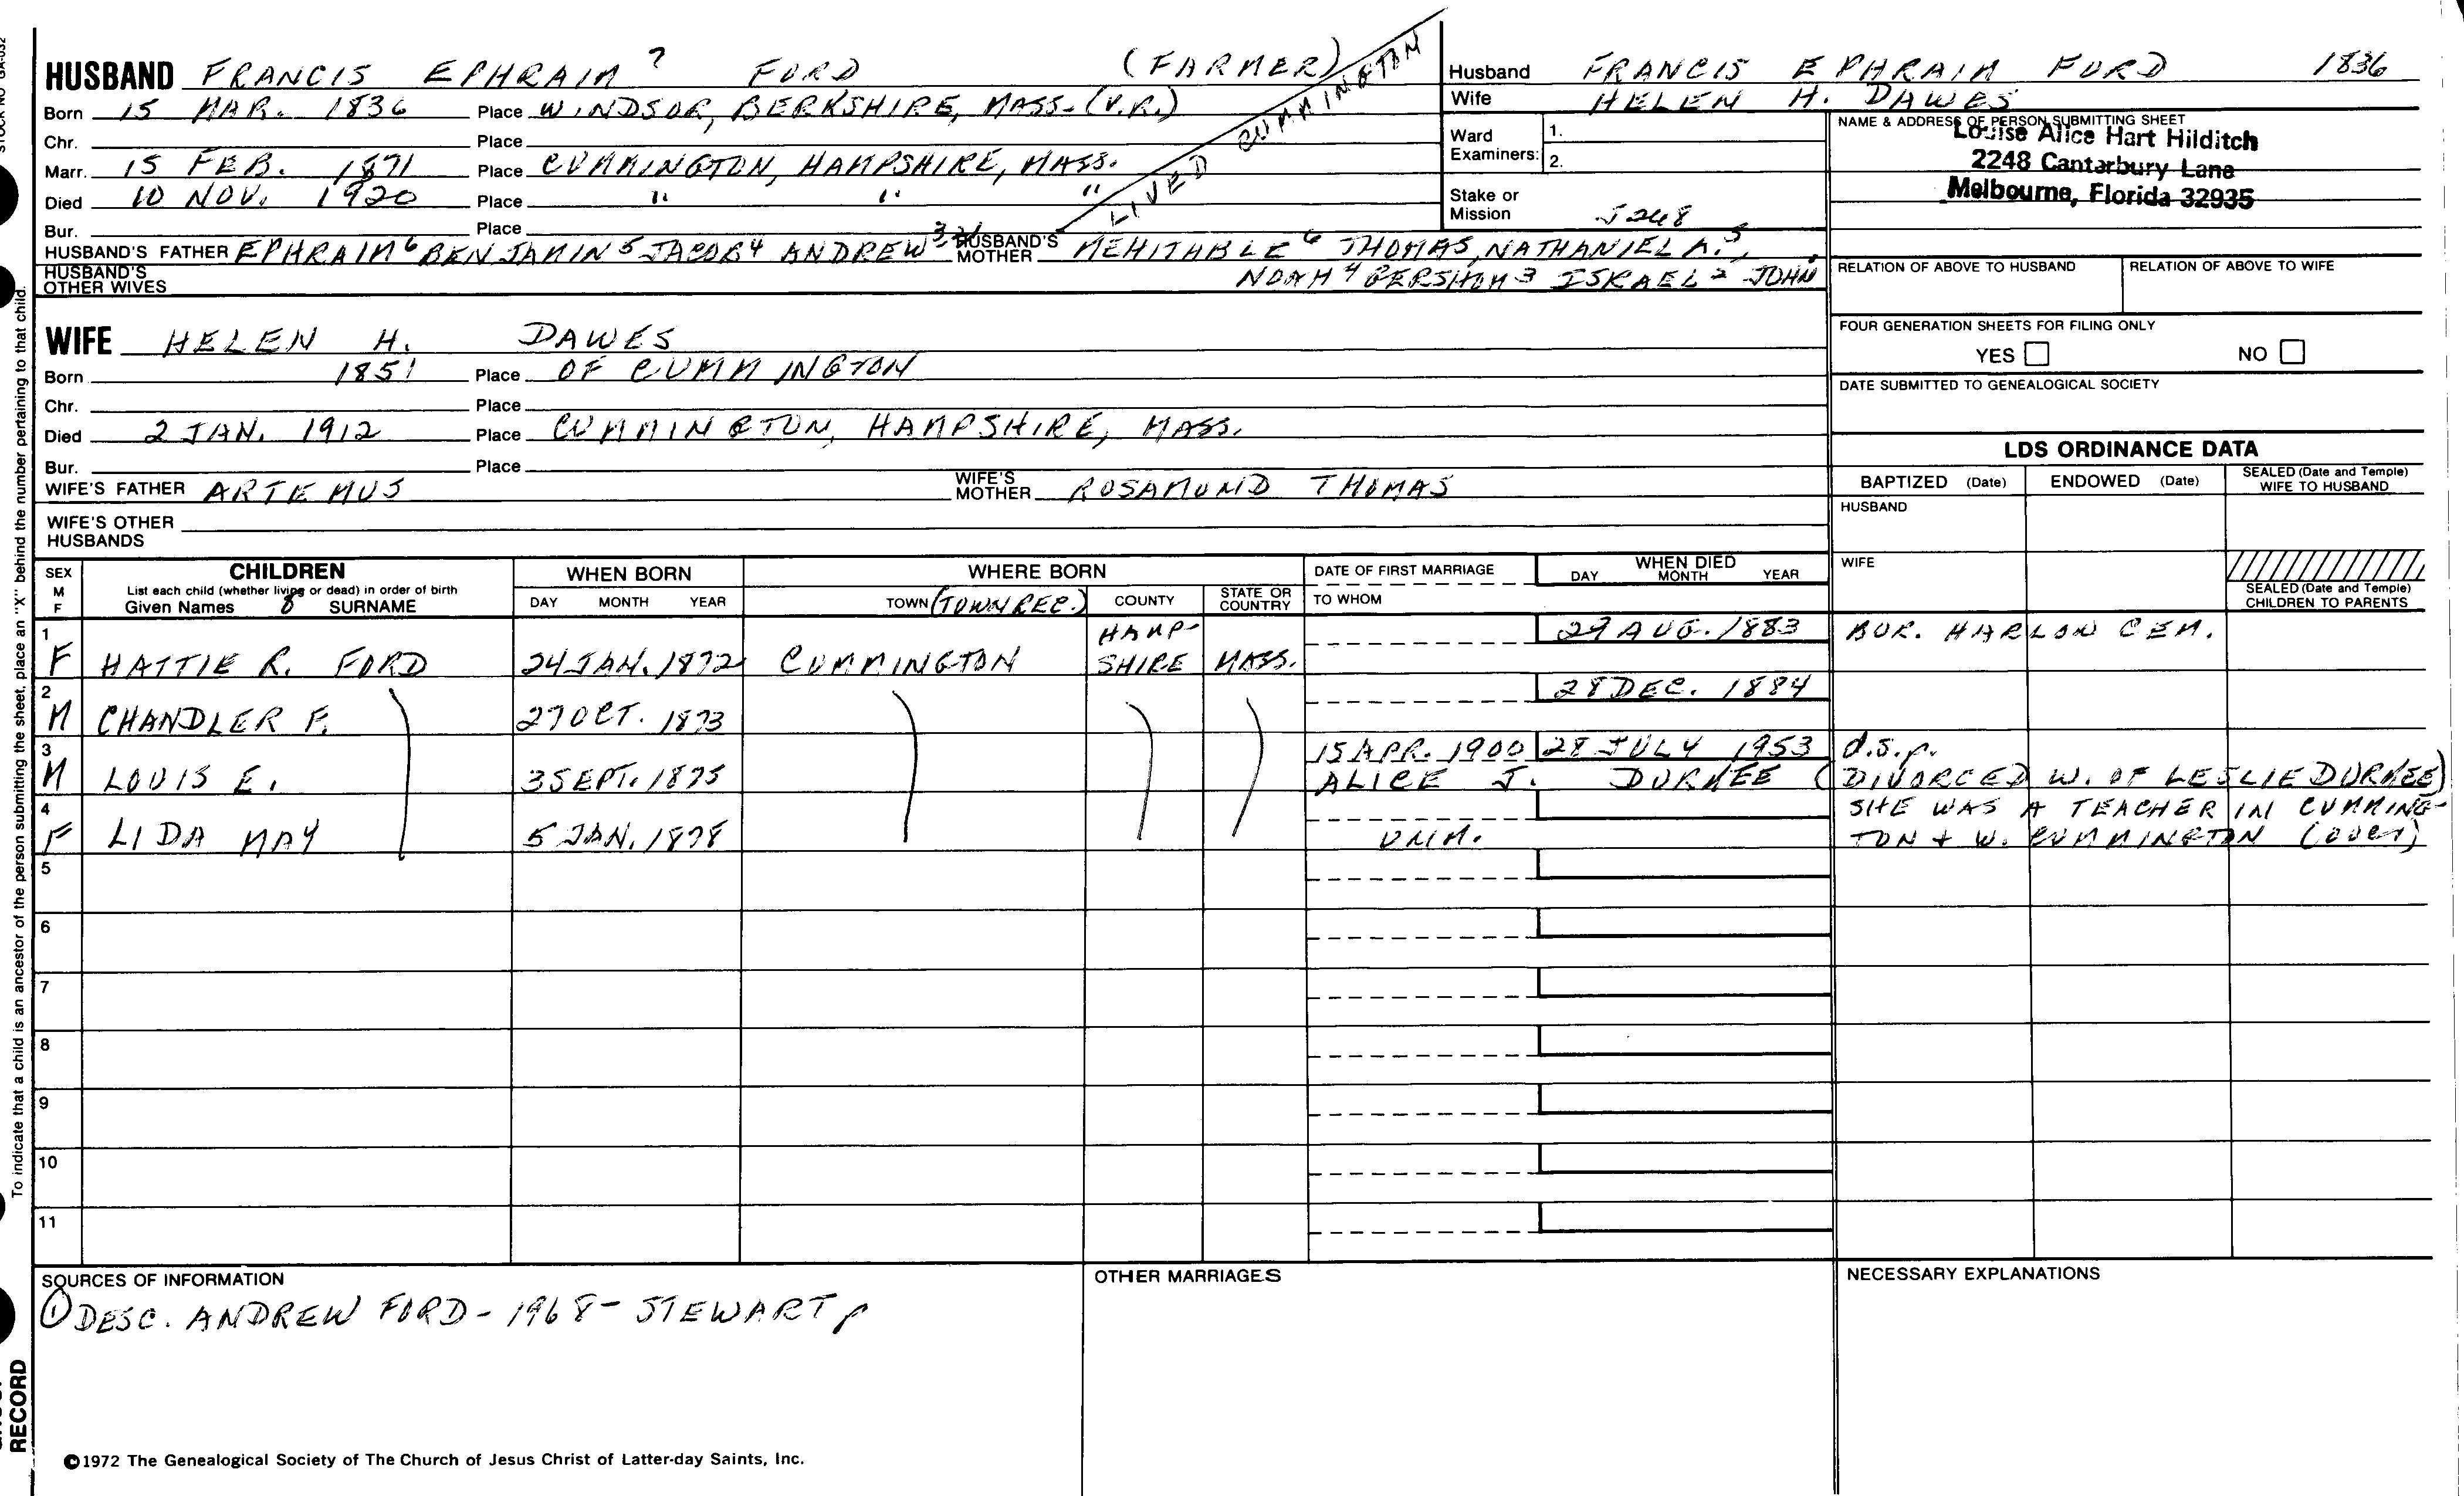 HUSBAND FRANCIS EPHRAIM 7 FORD (FARMER)
Born 15 MAR. 1836 Place WINDSOR, BERKSHIRE, MASS. (V.R.)
Chr. Place
Marr. 15 FEB. 1871 Place CUMMINGTON, HAMPSHIRE, MASS.
Died 10 NOV. 1920 Place " " "
Bur. Place
LIVED CUMMINGTON
HUSBAND'S FATHER EPHRAIM 6 BENJAMIN 5 JACOB 4 ANDREW HUSBAND'S MOTHER MEHITABLE 6 THOMAS, NATHANIEL A. 5,
NOAH 4 GERSHOM 3 ISRAEL 2 JOHN
HUSBAND'S OTHER WIVES
WIFE HELEN H. DAWES
Born 1851 Place OF CUMMINGTON
Chr. Place
Died 2 JAN. 1912 Place CUMMINGTON, HAMPSHIRE, MASS.
Bur. Place
WIFE'S FATHER ARTEMUS WIFE'S MOTHER ROSAMUND THOMAS
WIFE'S OTHER HUSBANDS
Husband FRANCIS EPHRAIM FORD 1836
Wife HELEN H. DAWES
Ward Examiners: 1.
2.
Stake or Mission J248
NAME & ADDRESS OF PERSON SUBMITTING SHEET
Louise Alice Hart Hilditch
2248 Cantarbury Lane
Melbourne, Florida 32935
RELATION OF ABOVE TO HUSBAND RELATION OF ABOVE TO WIFE
FOUR GENERATION SHEETS FOR FILING ONLY
YES NO
DATE SUBMITTED TO GENEALOGICAL SOCIETY
LDS ORDINANCE DATA
BAPTIZED (Date) ENDOWED (Date) SEALED (Date and Temple) WIFE TO HUSBAND
HUSBAND
WIFE
SEALED (Date and Temple) CHILDREN TO PARENTS
SEX M F CHILDREN WHEN BORN WHERE BORN DATE OF FIRST MARRIAGE WHEN DIED
List each child (whether living or dead) in order of birth
Given Names 8 SURNAME DAY MONTH YEAR TOWN (TOWN REC.) COUNTY STATE OR COUNTRY TO WHOM DAY MONTH YEAR
1 F HATTIE R. FORD 24 JAN. 1872 CUMMINGTON HAMPSHIRE MASS. 29 AUG. 1883 BUR. HARLOW CEM.
2 M CHANDLER F. 27 OCT. 1873 28 DEC. 1884
3 M LOUIS E. 3 SEPT. 1875 15 APR. 1900 28 JULY 1953 d.s.p.
ALICE J. DURKEE (DIVORCED W. OF LESLIE DURKEE)
SHE WAS A TEACHER IN CUMMING-
4 F LIDA MAY 5 JAN. 1878 UNM. TON + W. CUMMINGTON (over)
5
6
7
8
9
10
11
SOURCES OF INFORMATION
① DESC. ANDREW FORD - 1968 - STEWART p
OTHER MARRIAGES
NECESSARY EXPLANATIONS
©1972 The Genealogical Society of The Church of Jesus Christ of Latter-day Saints, Inc.
To indicate that a child is an ancestor of the person submitting the sheet, place an "X" behind the number pertaining to that child.
RECORD